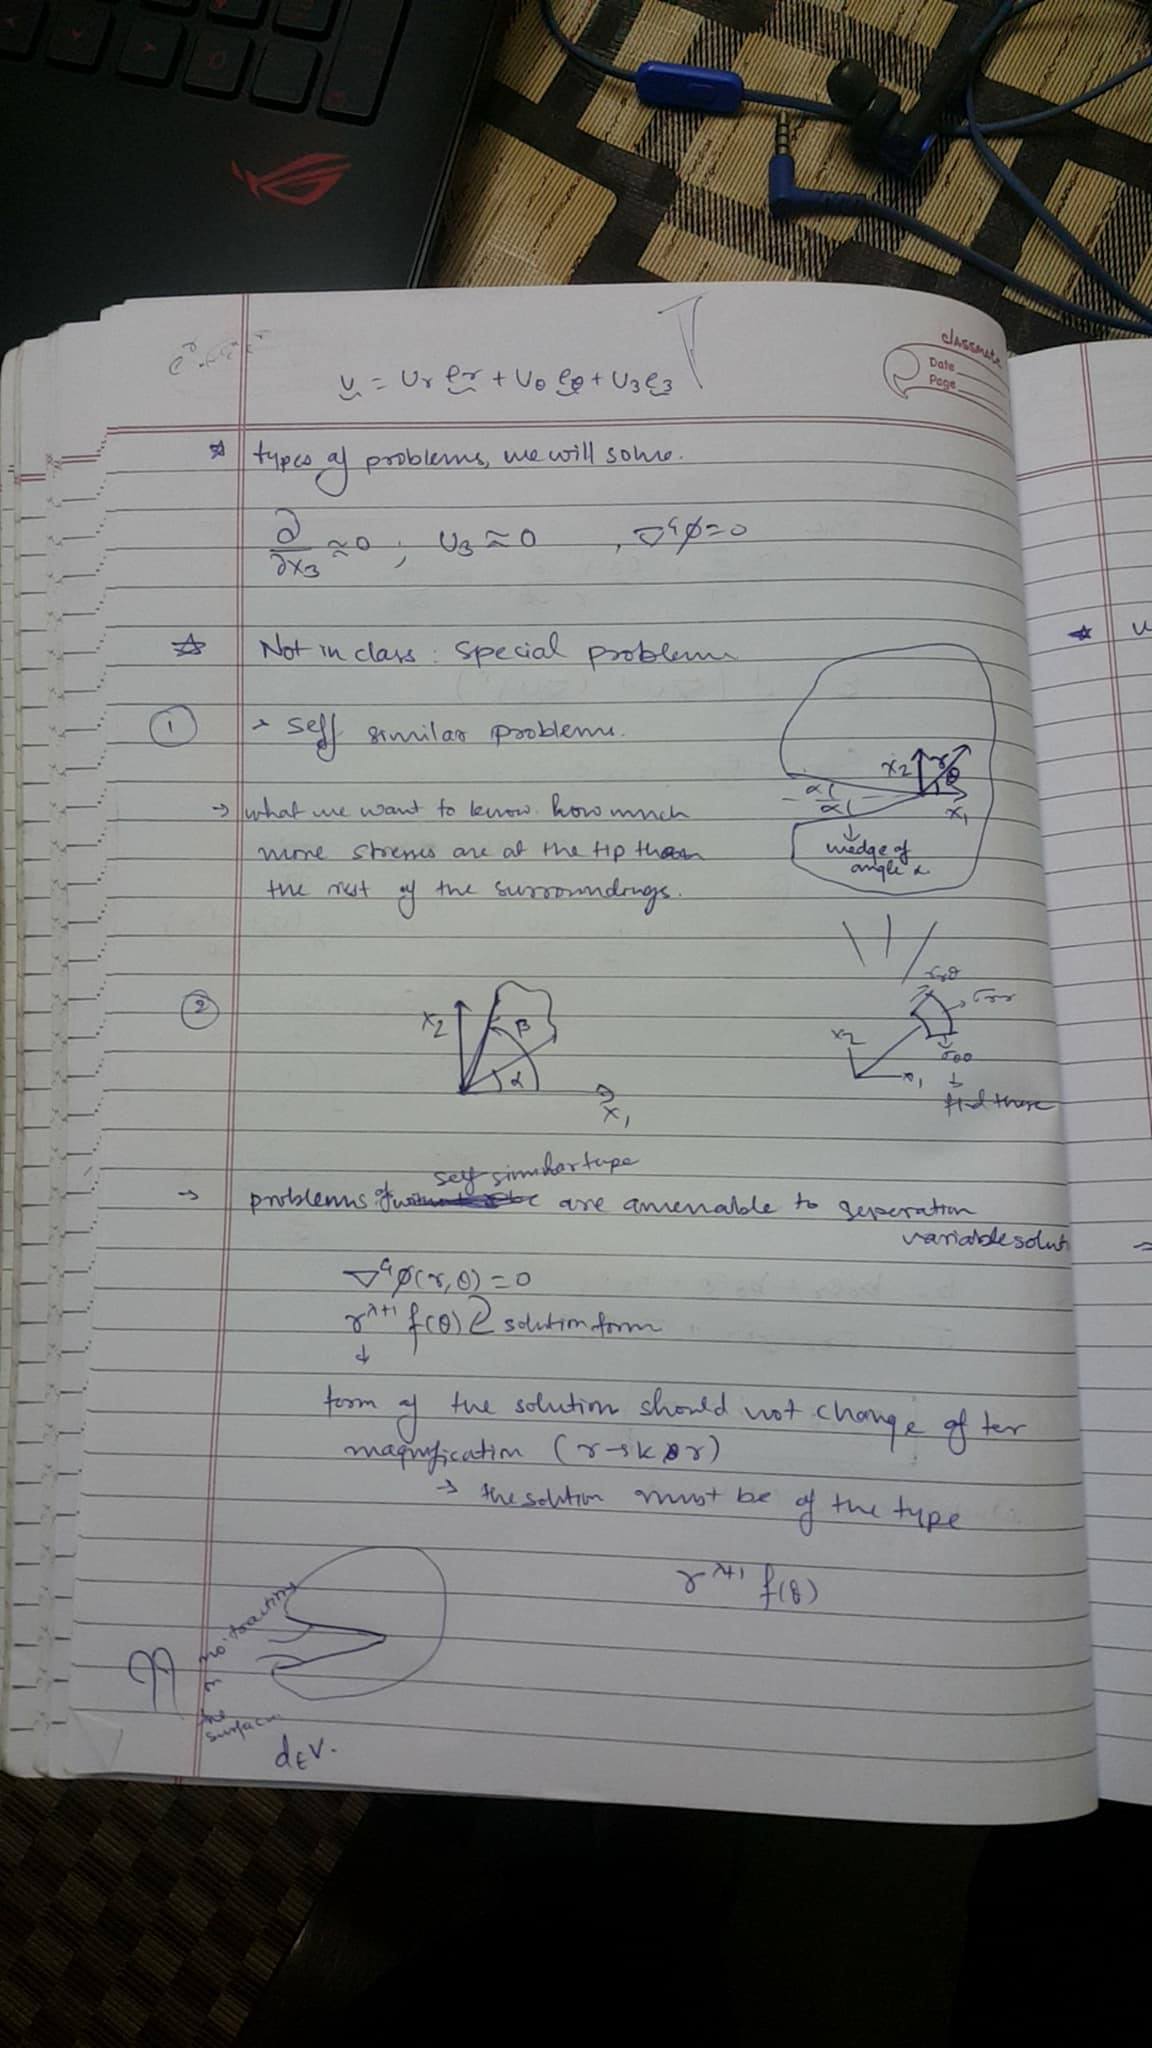 classmate
Date
Page
u = Ur er + Uθ eθ + U3 e3
☆ types of problems, we will solve.
∂/∂x3 ≈ 0 ; U3 ≈ 0 , ∇⁴φ = 0
☆ Not in class : special problem
① → self similar problems.
→ what we want to know. how much
more stresses are at the tip than
the rest of the surroundings.
x2 r θ
α
α
x1
wedge of
angle α
②
x2 β α x1
σrθ
σrr
σθθ
x2
x1
find these
self similar type
→ problems of are amenable to seperation
variable solut
∇⁴φ(r,θ) = 0
r^λ+1 f(θ) } solution form
↓
form of the solution should not change after
magnification (r → k r)
→ the solution must be of the type
r^λ+1 f(θ)
no traction
the
surface
dEV.